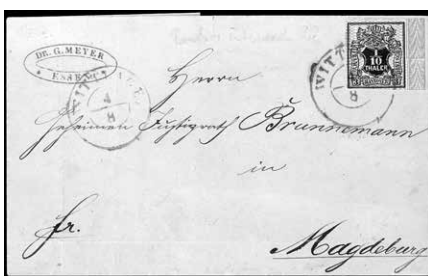 DR. G. MEYER
ESSEN
WITTLAGE
4
8
WITT
8
1/10
THALER
Herrn
Geheimen Justizrath Brunnemann
in
fr.
Magdeburg